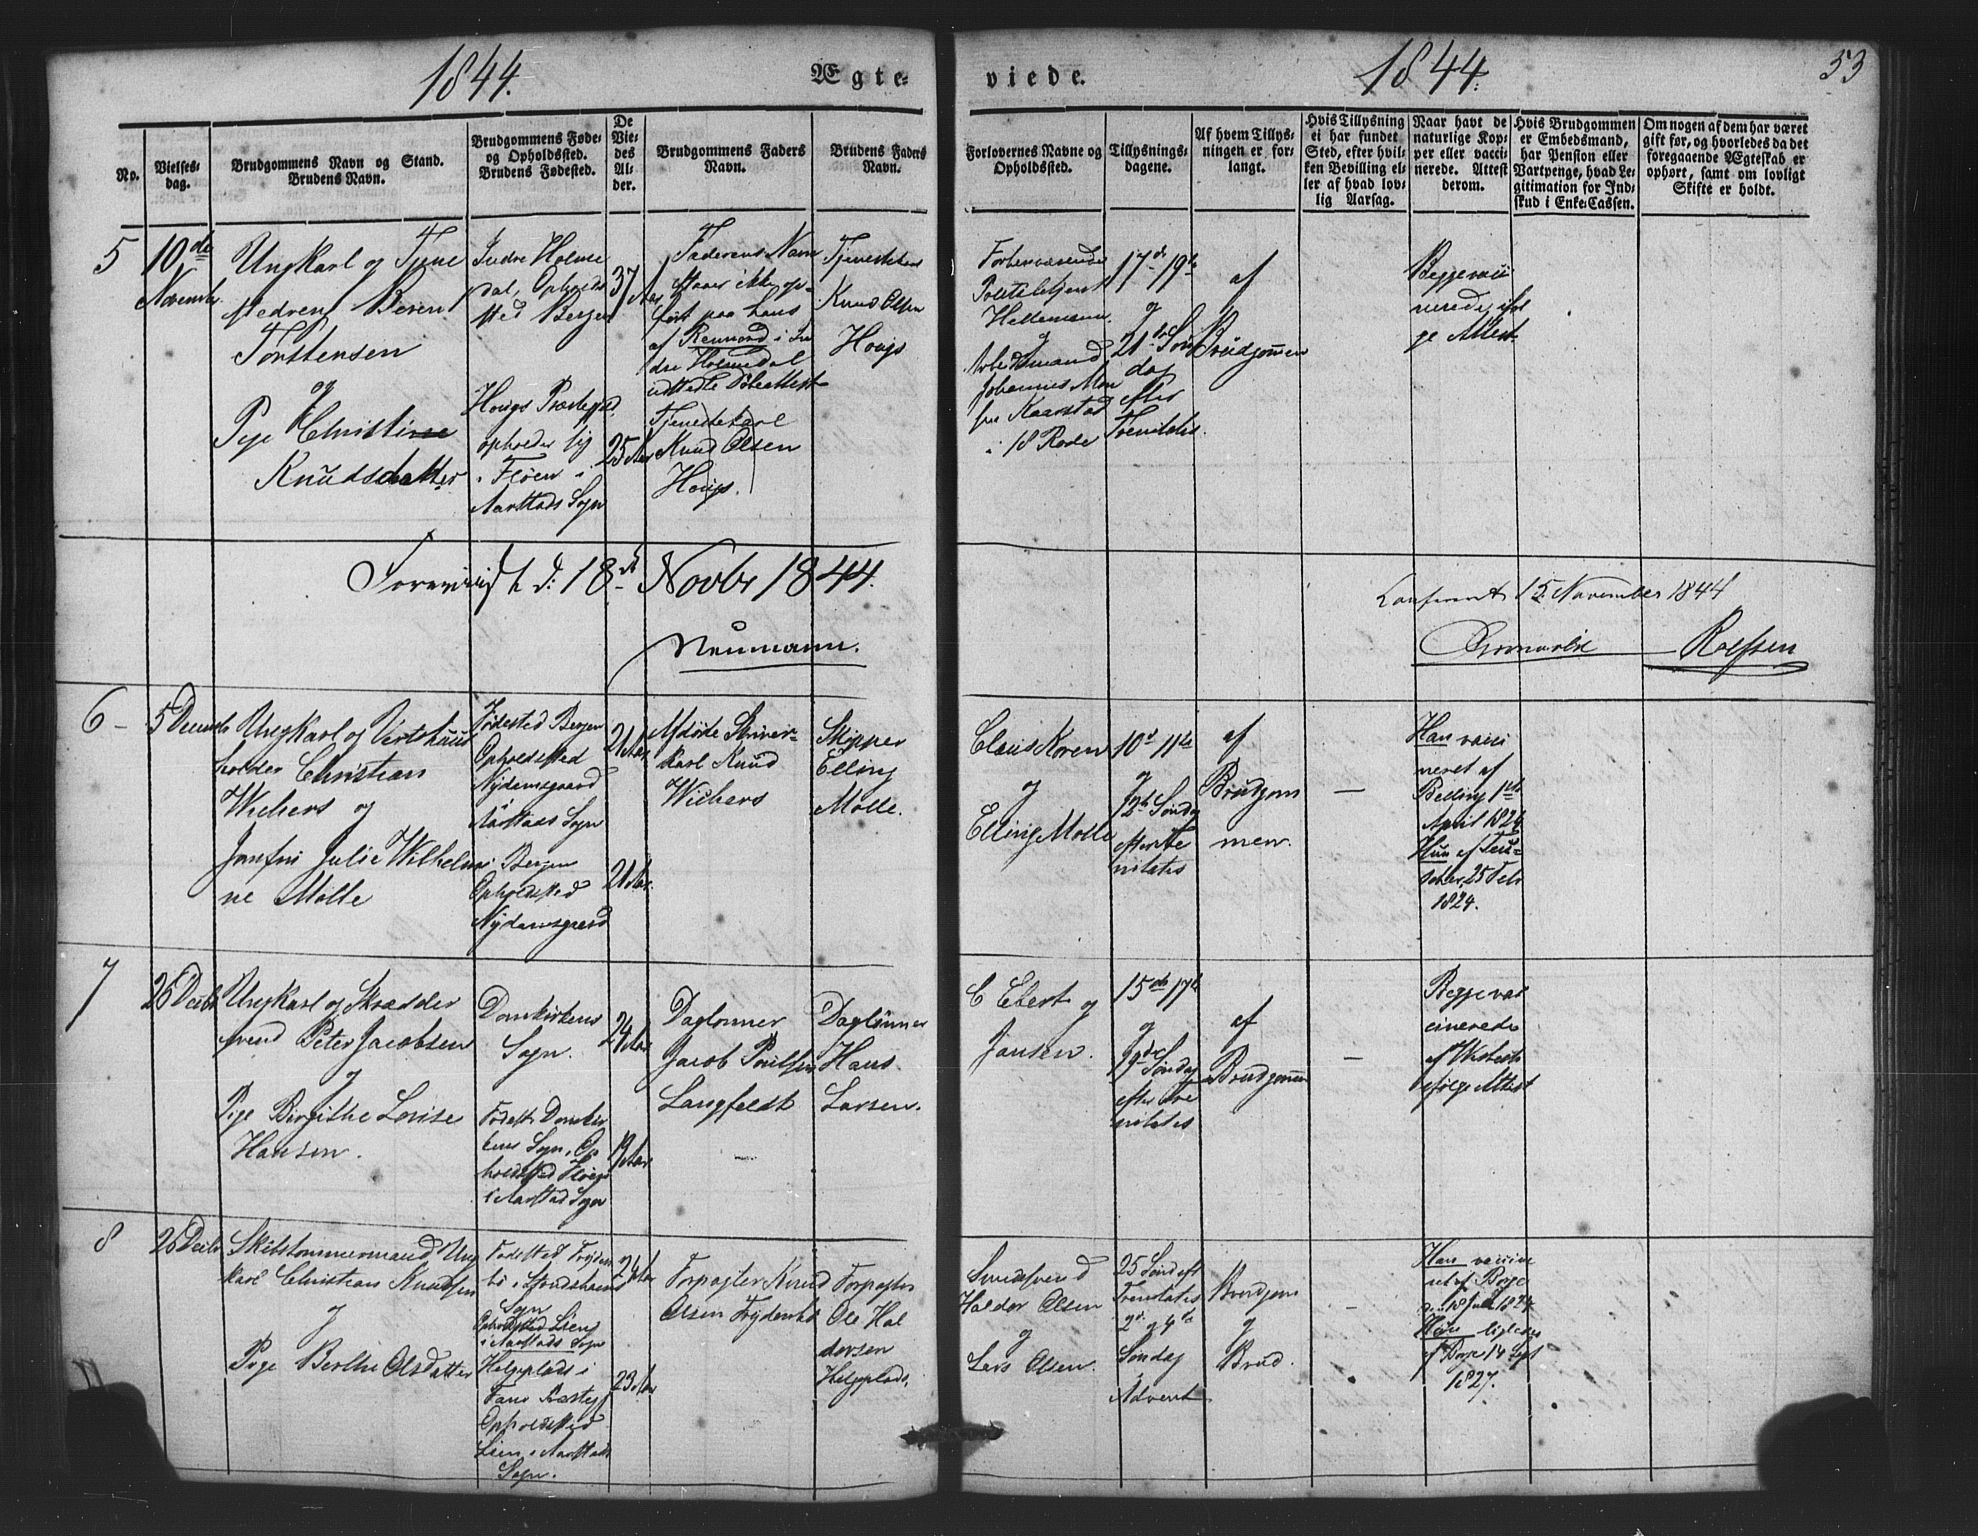 1844.
Ægte-
viede.
1844.
53
No.
Vielses-
dag.
Brudgommens Navn og Stand.
Brudens Navn.
Brudgommens Føde-
og Opholdssted.
Brudens Fødested.
De
Vie-
des
Al-
der.
Brudgommens Faders
Navn.
Brudens Faders
Navn.
Forlovernes Navne og
Opholdssted.
Tillysnings-
dagene.
Af hvem Tillys-
ningen er for-
langt.
Hvis Tillysning
ei har fundet
Sted, efter hvil-
ken Bevilling el-
ler af hvad lov-
lig Aarsag.
Naar havt de
naturlige Kop-
per eller vacci-
nerede. Attest
derom.
Hvis Brudgommen
er Embedsmand,
har Pension eller
Vartpenge, hvad Le-
gitimation for Ind-
skud i Enke-Cassen.
Om nogen af dem har været
gift før, og hvorledes da det
foregaaende Ægteskab er
ophørt, samt om lovligt
Skifte er holdt.
5
10de
November
Ungkarl og Tjene
stedreng Beren
Torstensen
og
Pige Christine
Knudsdatter
Indre Holme
dal, Opholds
sted Bergen
Hougs Præstegjd
opholder sig
i Fløen i
Aarstads Sogn
37 Aar
25 Aar
Faderens Navn
staaer ikke op-
ført paa hans
af Renvord i In
dre Holmedal
udstædte Døbeattest
Tjenestekarl
Knud Olsen
Hougs.
Tjenestekarl
Knud Olsen
Hougs
Forhenværende
Politibetjent
Hellemann
og
Arbeidsmand
Johannes Mon
sen Kaarstad
i 18 Rode
17de 19de
og
21de Søn
dag
efter
Trenitatis.
af
Brudgommen
Begge vacci
nerede iføl
ge Attest
Foreviist d: 18de Novbr 1844.
Neumann.
Confereret 15 November 1844
Rolfsen
6
5 Decembr
Ungkarl og Vertshuus
holder Christian
Wiebers og
Jomfru Julie Wilhelmi
ne Mølle
Fødested Bergen
Opholdssted
Nydamsgaard
Aarstads Sogn
Bergen
Opholdssted
Nydamsgaard
21 Aar
21 Aar.
Afdøde Skriver-
karl Knud
Wiebers
Skipper
Elling
Mølle.
Claus Koren
og
Elling Mølle
10de 11te
og
12te Søndag
efter Tre
nitatis
af
Brudgom
men.
—
Han vacci
neret af
Belling 1ste
April 1824
Hun af
25 Febr
1824.
7
26 Decbr
Ungkarl og Skrædder
svend Peter Jacobsen
og
Pige Birgithe Lovise
Hansen.
Domkirkens
Sogn.
Fødested Domkir
kens Sogn, Op
holdssted Fløen
i Aarstad Sogn
24 Aar
19 Aar
Daglønner
Jacob Poulsen
Langfeldt
Daglønner
Hans
Larsen.
C Ebert og
Jansen.
15de 17de
og
19de Søndag
efter Tre
nitatis
af
Brudgommen
—
Begge vac
cinerede
af Wisbech
ifølge Attest
8
26 Decbr
Skibstømmermand Ung
karl Christian Knudsen
og
Pige Berthe Olsdatter
Fødested Fryden
bø i
Sogn
Opholdssted Lien
i Aarstads Sogn
Helgeplads i
Fane Præstegj
Opholdssted
Lien i Aarstads
Sogn.
24 Aar
23 Aar
Forpagter Knud
Olsen Frydenbø
Forpagter
Ole Hal
dorsen
Helgeplads.
Smedsvend
Haldor Olsen
og
Lars Olsen.
25 Sønd eft
Trenitatis
2de og 4de
Søndag
Advent
Brudgom
og
Brud.
—
Han vaccine
ret af Boye
d. 18 Juli 1824
Hun ligeledes
af Boye 14 Sept
1827.